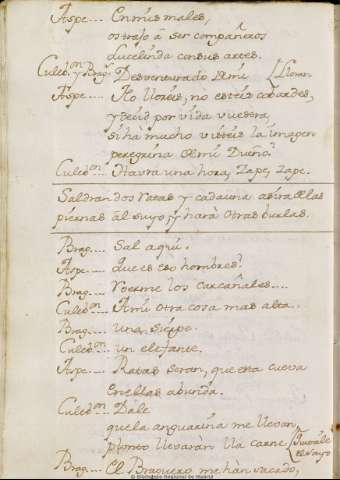 Aspe.... En mis males,
os trajo á ser compañeros
Lucelinda con sus artes.
Culebon. y Brag. Desventurado de mi Lloran
Aspe.... No lloreis, no esteis cobardes,
y decid por vida vuestra,
si ha mucho visteis la imagen
peregrina de mi Dueño?
Culebon.... Havra una hora, Zape, Zape.
Saldran dos Ratas y cada una asira de las
piernas al suyo, y hará otras burlas.
Brag.... Sal aquí.
Aspe.... Que es eso hombres?
Brag.... Roerme los carcañales....
Culebon.... A mi otra cosa mas alta.
Brag.... Una sierpe.
Culebon.... un elefante.
Aspe.... Ratas seran, que esta cueva
en ellas abunda.
Culebon.... Dale
que la anguarina me llevan,
presto llevarán la carne Quitale el sayo
Brag.... El Braguero me han sacado,
© Biblioteca Regional de Madrid